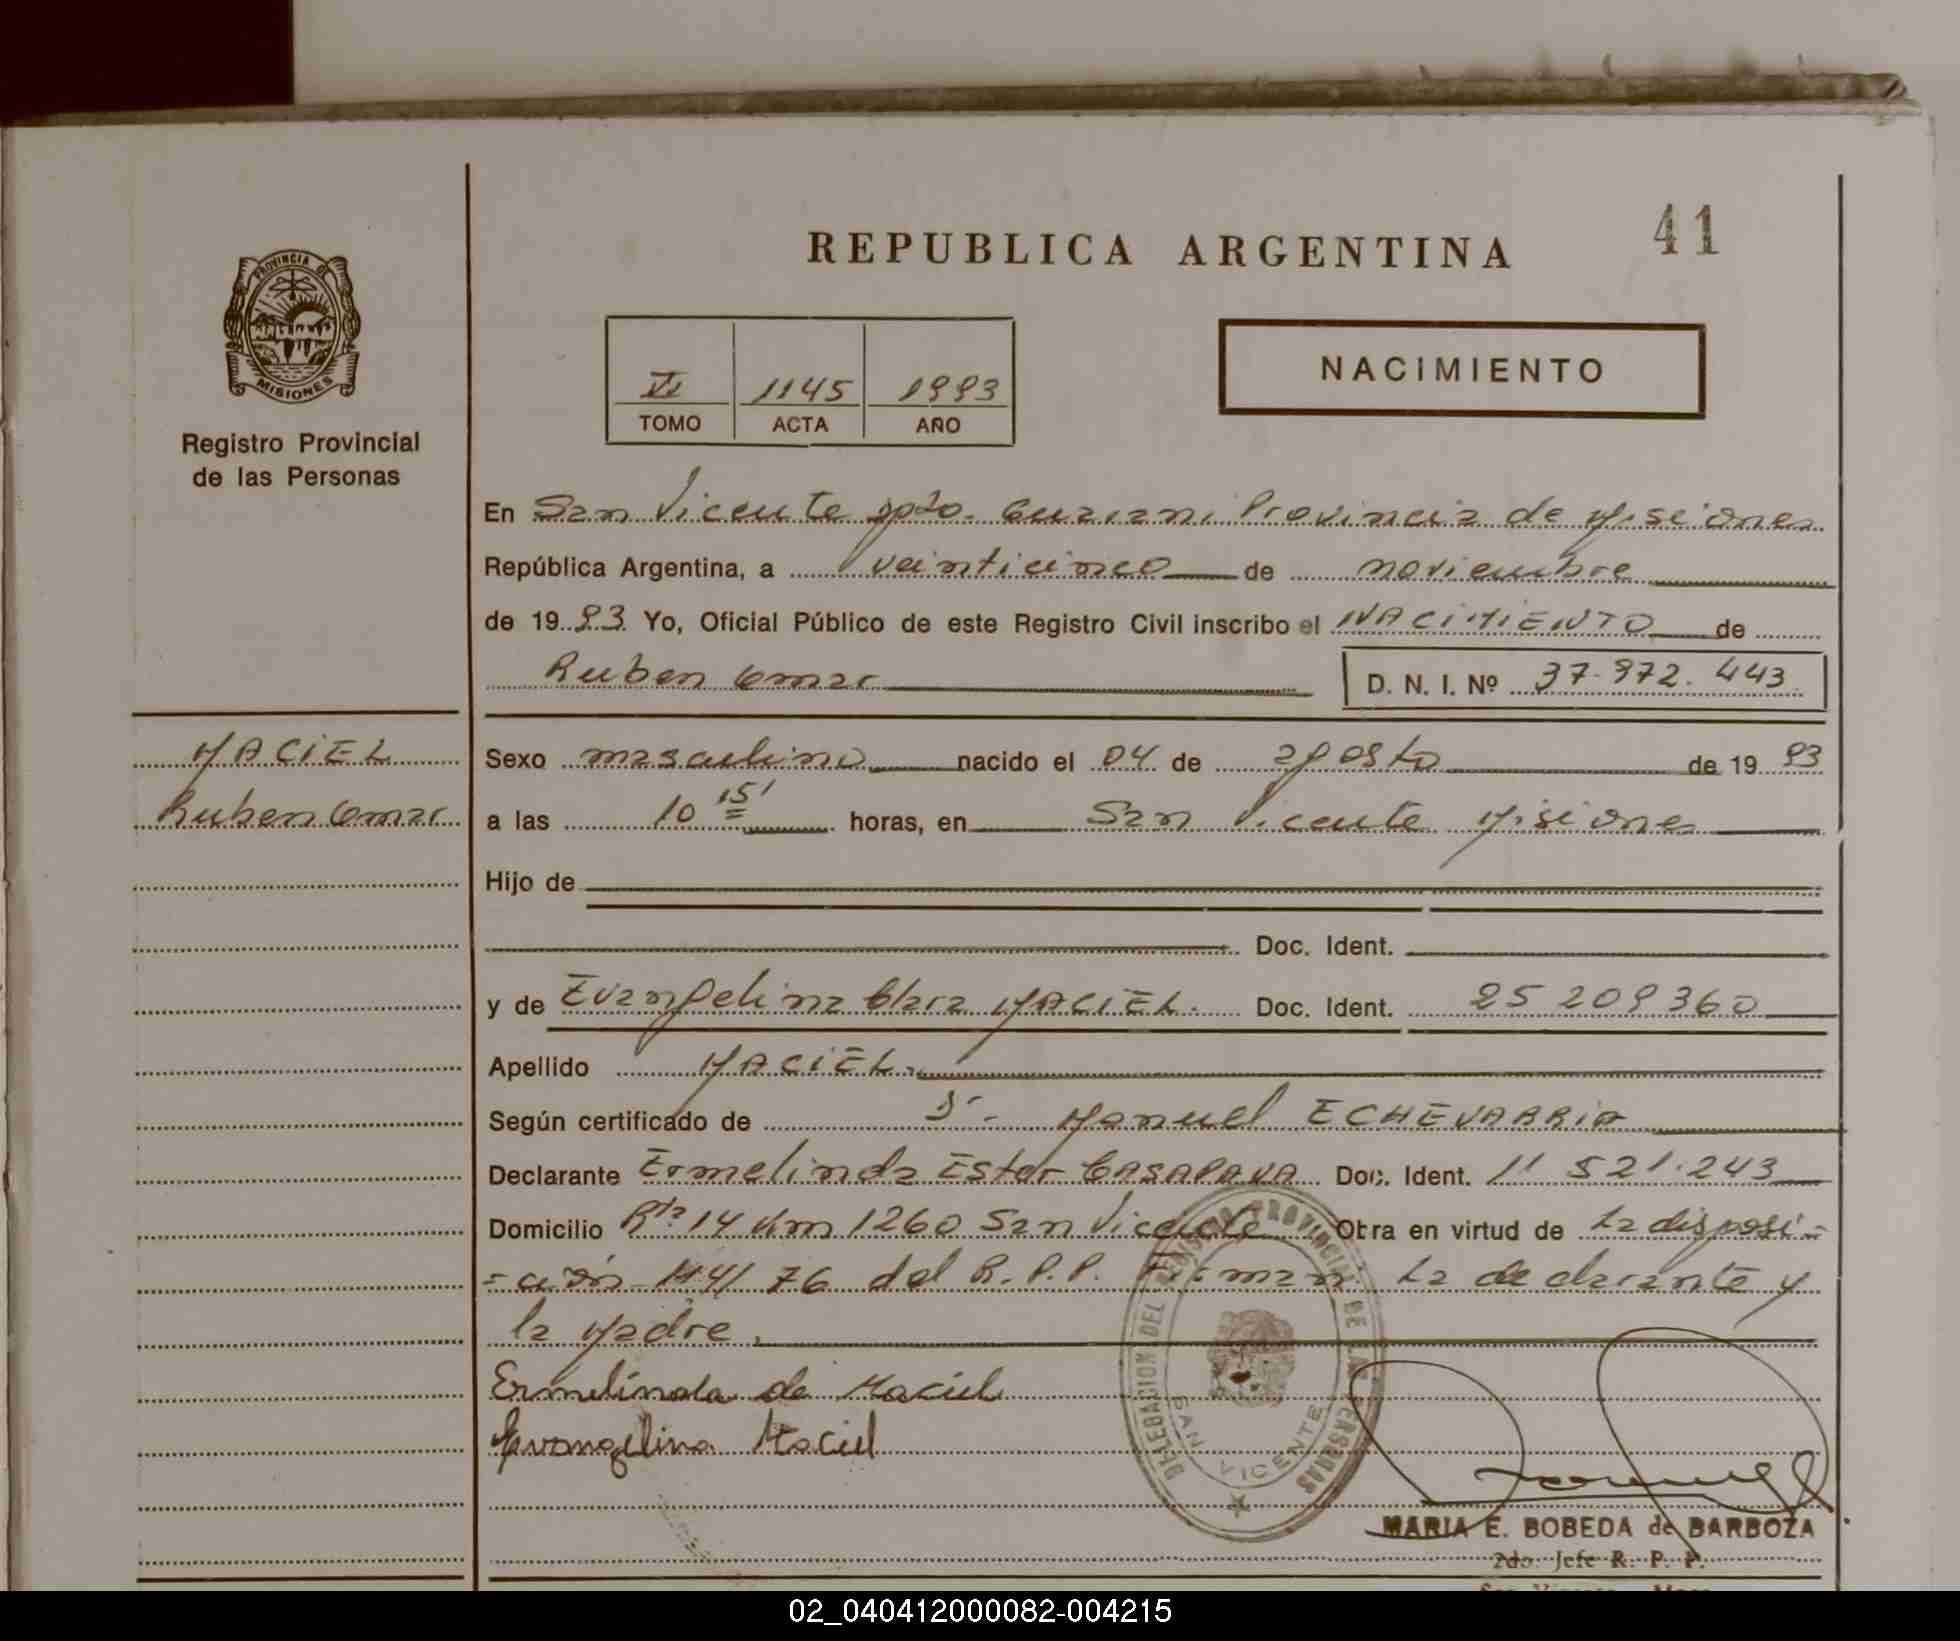 REPUBLICA ARGENTINA
41
PROVINCIA DE
MISIONES
Registro Provincial
de las Personas
NACIMIENTO
VI 1145 1993
TOMO ACTA AÑO
En San Vicente Dpto. Guarani Provincia de Misiones
República Argentina, a veinticinco de noviembre
de 1993 Yo, Oficial Público de este Registro Civil inscribo el NACIMIENTO de
Ruben Omar
D. N. I. Nº 37.972.443
MACIEL
Ruben Omar
Sexo masculino nacido el 04 de agosto de 1993
a las 10 15' horas, en San Vicente Misiones
Hijo de
Doc. Ident.
y de Evangelina Clara MACIEL. Doc. Ident. 25 209360
Apellido MACIEL.
Según certificado de Dr. Manuel ECHEVARRIA
Declarante Ermelinda Ester CASAPAVA Doc. Ident. 11 521.243
Domicilio Rta 14 Km 1260 San Vicente Obra en virtud de la disposi-
-ción 114/76 del R.P.P. Firman la declarante y
la Madre.
Ermelinda de Maciel
Evangelina Maciel
DELEGACION DEL REGISTRO PROVINCIAL DE LAS PERSONAS
SAN VICENTE
MARIA E. BOBEDA de BARBOZA
2do. Jefe R. P. P.
02_040412000082-004215